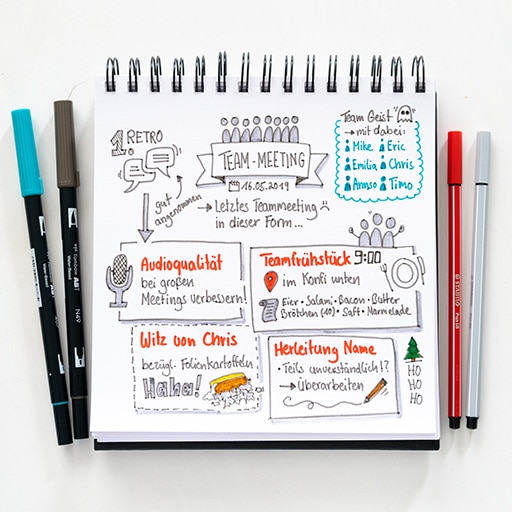 1. RETRO
gut
angenommen
TEAM-MEETING
16.05.2019
→ Letztes Teammeeting
in dieser Form...
Team Geist
→ mit dabei:
Mike Eric
Emilia Chris
Timo
Audioqualität
bei großen
Meetings verbessern!
Teamfrühstück 9:00
im Konfi unten
Eier • Salami • Bacon • Butter
Brötchen (40) • Saft • Marmelade
Witz von Chris
bezügl. Folienkartoffeln
Haha!
Herleitung Name
• Teils unverständlich!?
→ Überarbeiten
HO
HO
HO
Tombow ABT
N49
STABILO